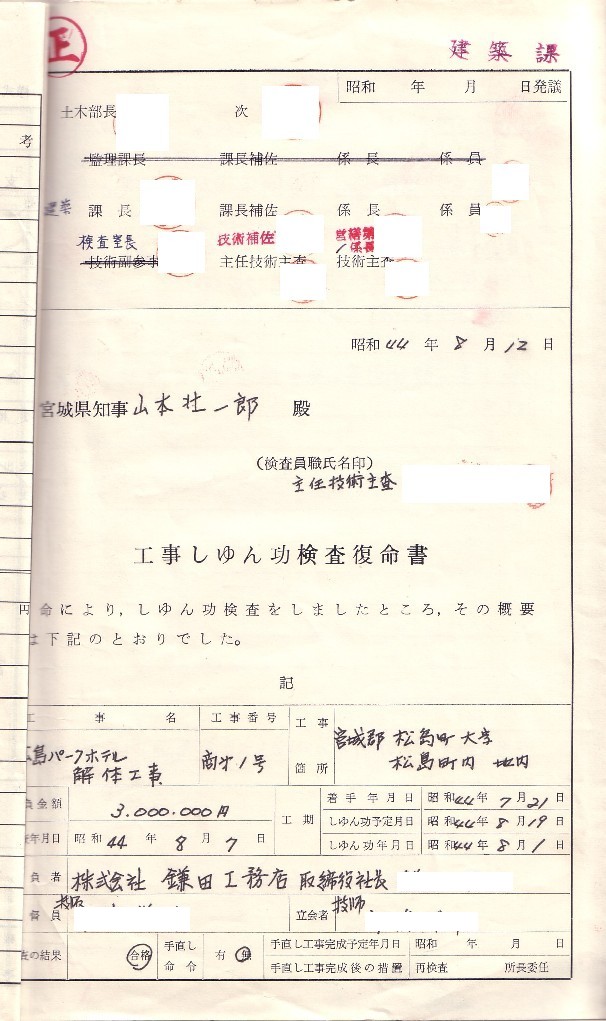 正
建築課
昭和 年 月 日発議
土木部長 次
考
監理課長 課長補佐 係長 係員
建築 課長 課長補佐 係長 係員
検査室長 技術補佐 営繕第 係長
技術副参事 主任技術主査 技術主査
昭和44年8月12日
宮城県知事 山本壮一郎 殿
(検査員職氏名印)
主任技術主査
工事しゆん功検査復命書
命により,しゆん功検査をしましたところ,その概要
は下記のとおりでした。
記
工事名 工事番号 工事箇所
島パークホテル 解体工事 商才1号 宮城郡 松島町 大字 松島町内 地内
負金額 3.000.000円 工期 着手年月日 昭和44年7月21日
しゆん功予定月日 昭和44年8月19日
年月日 昭和44年8月7日 しゆん功年月日 昭和44年8月1日
負者 株式会社 鎌田工務店 取締役社長
督員 技師 立会者 技師
の結果 合格 手直し命令 有 無 手直し工事完成予定年月日 昭和 年 月 日
手直し工事完成後の措置 再検査 所長委任